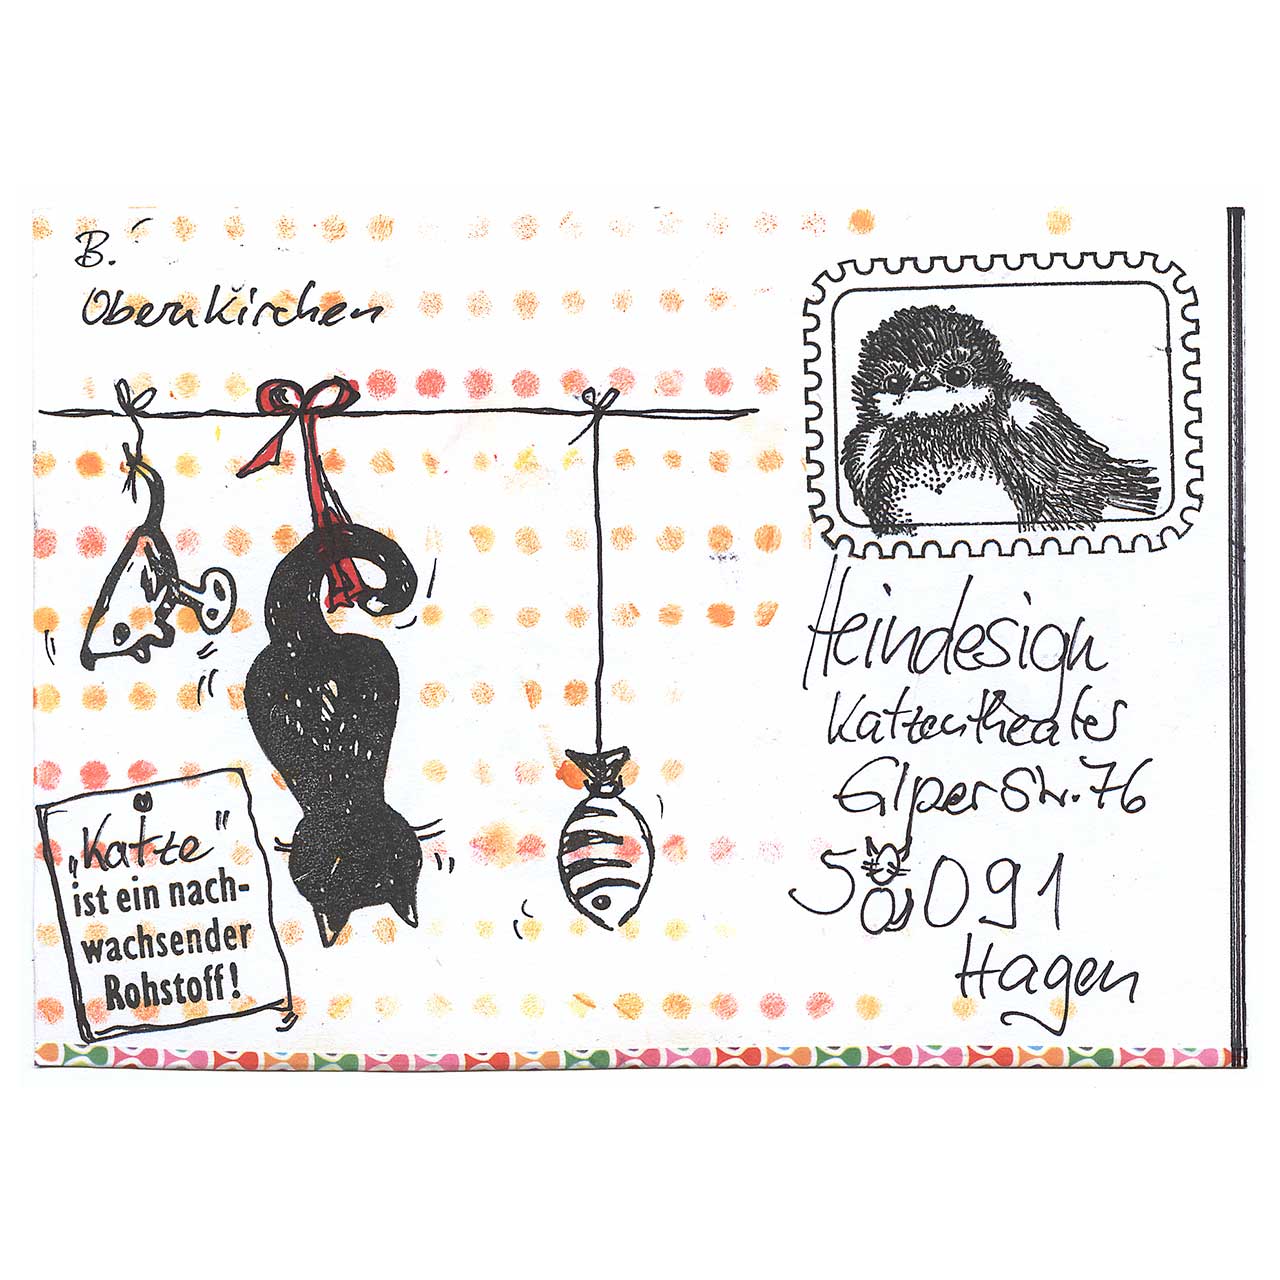 B.
Obernkirchen
„Katze“
ist ein nach-
wachsender
Rohstoff!
Heindesign
Katzentheater
Elper Str. 76
58091
Hagen